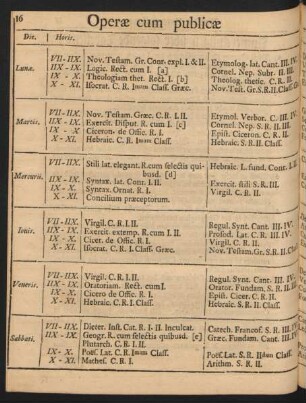 16 Operæ cum publicæ
Die. Horis.
Lunæ. VII-IIX. Nov. Testam. Gr. Conr. expl. I. & II. Etymolog. lat. Cant. III. IV.
IIX - IX. Logic. Rect. cum I. [a] Cornel. Nep. Subr. II. III.
IX - X. Theologiam thet. Rect. I. [b] Theolog. thetic. C. R. II.
X - XI. Isocrat. C. R. Imam Class. Græc. Nov. Test. Gr. S. R. II. Class. Gr.
Martis. VII-IIX. Nov. Testam. Græc. C. R. I. II. Etymol. Verbor. C. III. IV.
IIX - IX. Exercit. Disput. R. cum I. [c] Cornel. Nep. S. R. II. III.
IX - X. Ciceron. de Offic. R. I. Epist. Ciceron. C. R. II.
X - XI. Hebraic. C. R. Imam Class. Hebraic. S. R. II. Class.
Mercurii. VII-IIX. Stili lat. elegant. R. cum selectis qui- Hebraic. L. fund. Conr. I. II.
busd. [d]
IIX - IX. Syntax. lat. Conr. I. II. Exercit. stili S. R. III.
IX - X. Syntax. Ornat. R. I. Virgil. C. R. II.
X - XI. Concilium præceptorum.
Iovis. VII-IIX. Virgil. C. R. I. II. Regul. Synt. Cant. III. IV.
IIX - IX. Exercit. extemp. R. cum I. II. Prosod. Lat. C. R. III. IV.
IX - X. Cicer. de Offic. R. I. Virgil. C. R. II.
X - XI. Isocrat. C. R. I. Class. Græc. Nov. Testam. Gr. S. R. II. Cl.
Veneris. VII-IIX. Virgil. C. R. I. II. Regul. Synt. Cant. III. IV.
IIX - IX. Oratoriam. Rect. cum I. Orator. Fundam. S. R. II. III.
IX - X. Cicero de Offic. R. I. Epist. Cicer. C. R. II.
X - XI. Hebraic. C. R. I. Class. Hebraic. S. R. II. Class.
Sabbati. VII-IIX. Dieter. Inst. Cat. R. I. II. Inculcat. Catech. Francof. S. R. III. IV.
IIX - IX. Geogr. R. cum selectis quibusd. [e] Græc. Fundam. Cant. III. IV.
Plutarch. C. R. I. II.
IX - X. Poës. Lat. C. R. Imam Class. Poës. Lat. S. R. IIdam Class.
X - XI. Mathes. C. R. I. Arithm. S. R. II.